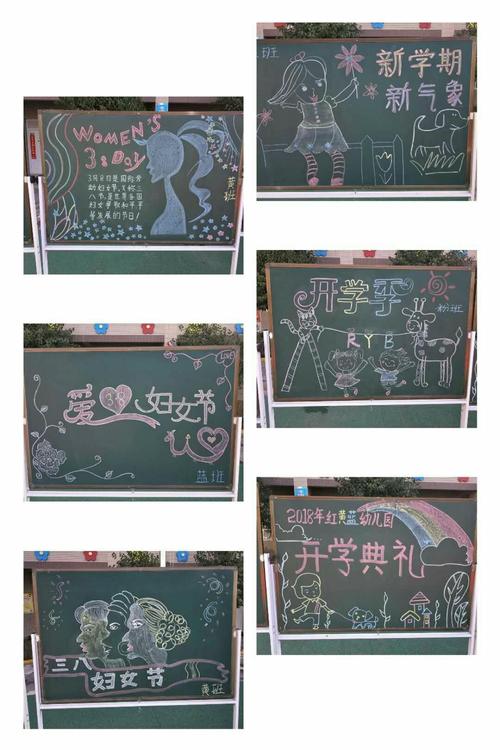 WOMEN'S
3 8 DAY
3月8日是国际劳
动妇女节,又称三
八节,是世界各国
妇女争取和平平
等发展的节日!
黄班
LOVE
爱 38 妇女节
蓝班
三八
妇女节
黄班
班
新学期
新气象
开学季
粉班
RYB
2018年红黄蓝幼儿园
开学典礼